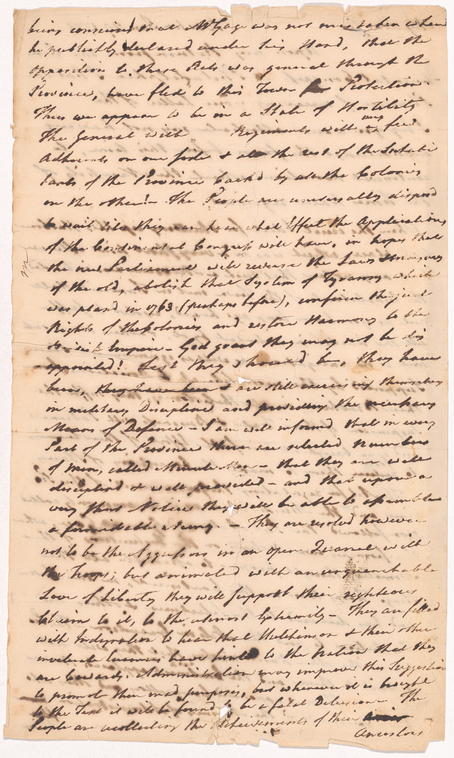 being convinced that Mr Gage was not mistaken when
he publickly declared under his Hand, that the
opposition to these Acts was general through the
Province, have fled to this Town for Protection
Thus we appear to be in a State of Hostility
The General with Regiments with very few
Adherents on one side & all the rest of the Inhabi
tants of the Province back'd by all the Colonies
on the other! The People are universally disposd
to wait till they can hear what Effect the Applications
of the Continental Congress will have, in hopes that
the new Parliament will reverse the Laws & measures
of the old, abolish that System of Tyranny which
was pland in 1763 (perhaps before), confirm the just
Rights of the Colonies and restore Harmony to the
British Empire. God grant they may not be dis
appointed! Lest they should be, they have
been, they have been & are still exercising themselves
in military Discipline and providing the necessary
Means of Defence - I am well informd that in every
Part of the Province there are selected Numbers
of men, called Minute Men - that they are well
disciplind & well provided - and that upon a
very short Notice they will be able to assemble
a formidable Army. - They are resolvd however
not to be the Aggressors in an open Quarrel with
the Troops; but animated with an unquenchable
Love of Liberty they will support their righteous
Claim to it, to the utmost Extremity - They are filled
with Indignation to hear that Hutchinson & their other
inveterate Enemies have hinted to the Nation that they
are Cowards. Administration may improve this Suggestion
to promote their mad purposes, but whenever it is brought
to the Test it will be found to be a fatal Delusion. The
People are recollecting the Atchievements of their
Ancestors